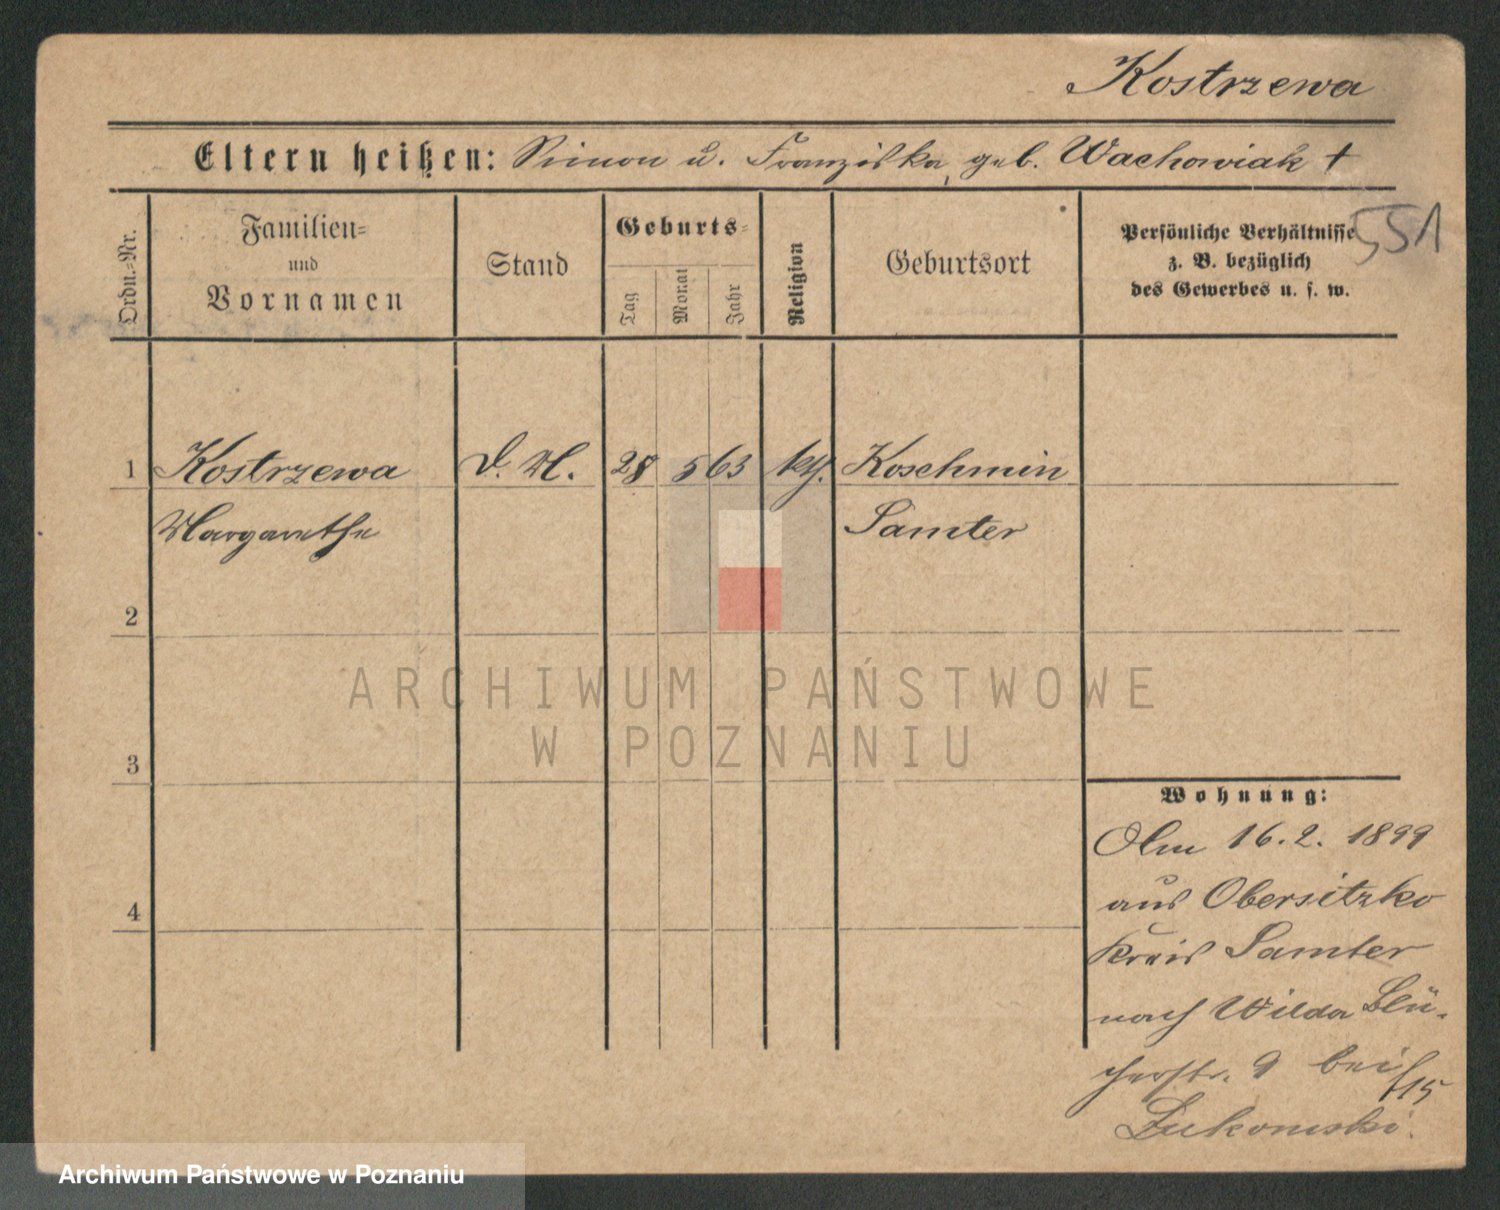 Kostrzewa
Eltern heißen: Simon u. Franziska, geb. Wachowiak †
551
Ordn.-Nr.
Familien-
und
Vornamen
Stand
Geburts-
Tag
Monat
Jahr
Religion
Geburtsort
Persönliche Verhältnisse
z. B. bezüglich
des Gewerbes u. s. w.
1 Kostrzewa D. M. 28 5 63 kth. Koschmin
Margarethe Samter
2
ARCHIWUM PAŃSTWOWE
W POZNANIU
3
Wohnung:
Am 16.2. 1899
aus Obersitzko
4
Kreis Samter
nach Wilda Blü-
cherstr. 9 bei
15
Lukomski.
Archiwum Państwowe w Poznaniu